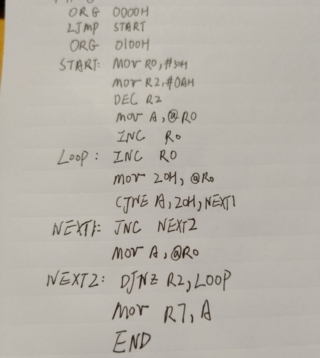 ORG 0000H
LJMP START
ORG 0100H
START: MOV R0,#30H
MOV R2,#0AH
DEC R2
MOV A,@R0
INC R0
LOOP: INC R0
MOV 20H,@R0
CJNE A,20H,NEXT1
NEXT1: JNC NEXT2
MOV A,@R0
NEXT2: DJNZ R2,LOOP
MOV R7,A
END